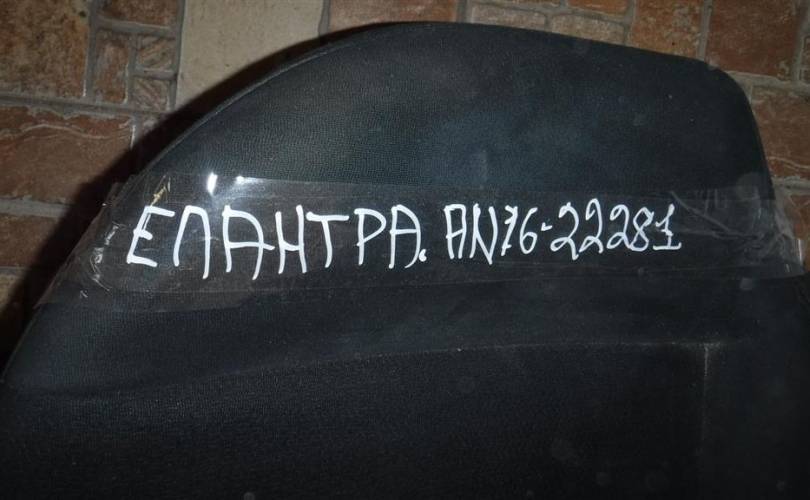 ЕЛАНТРА. AN76-22281